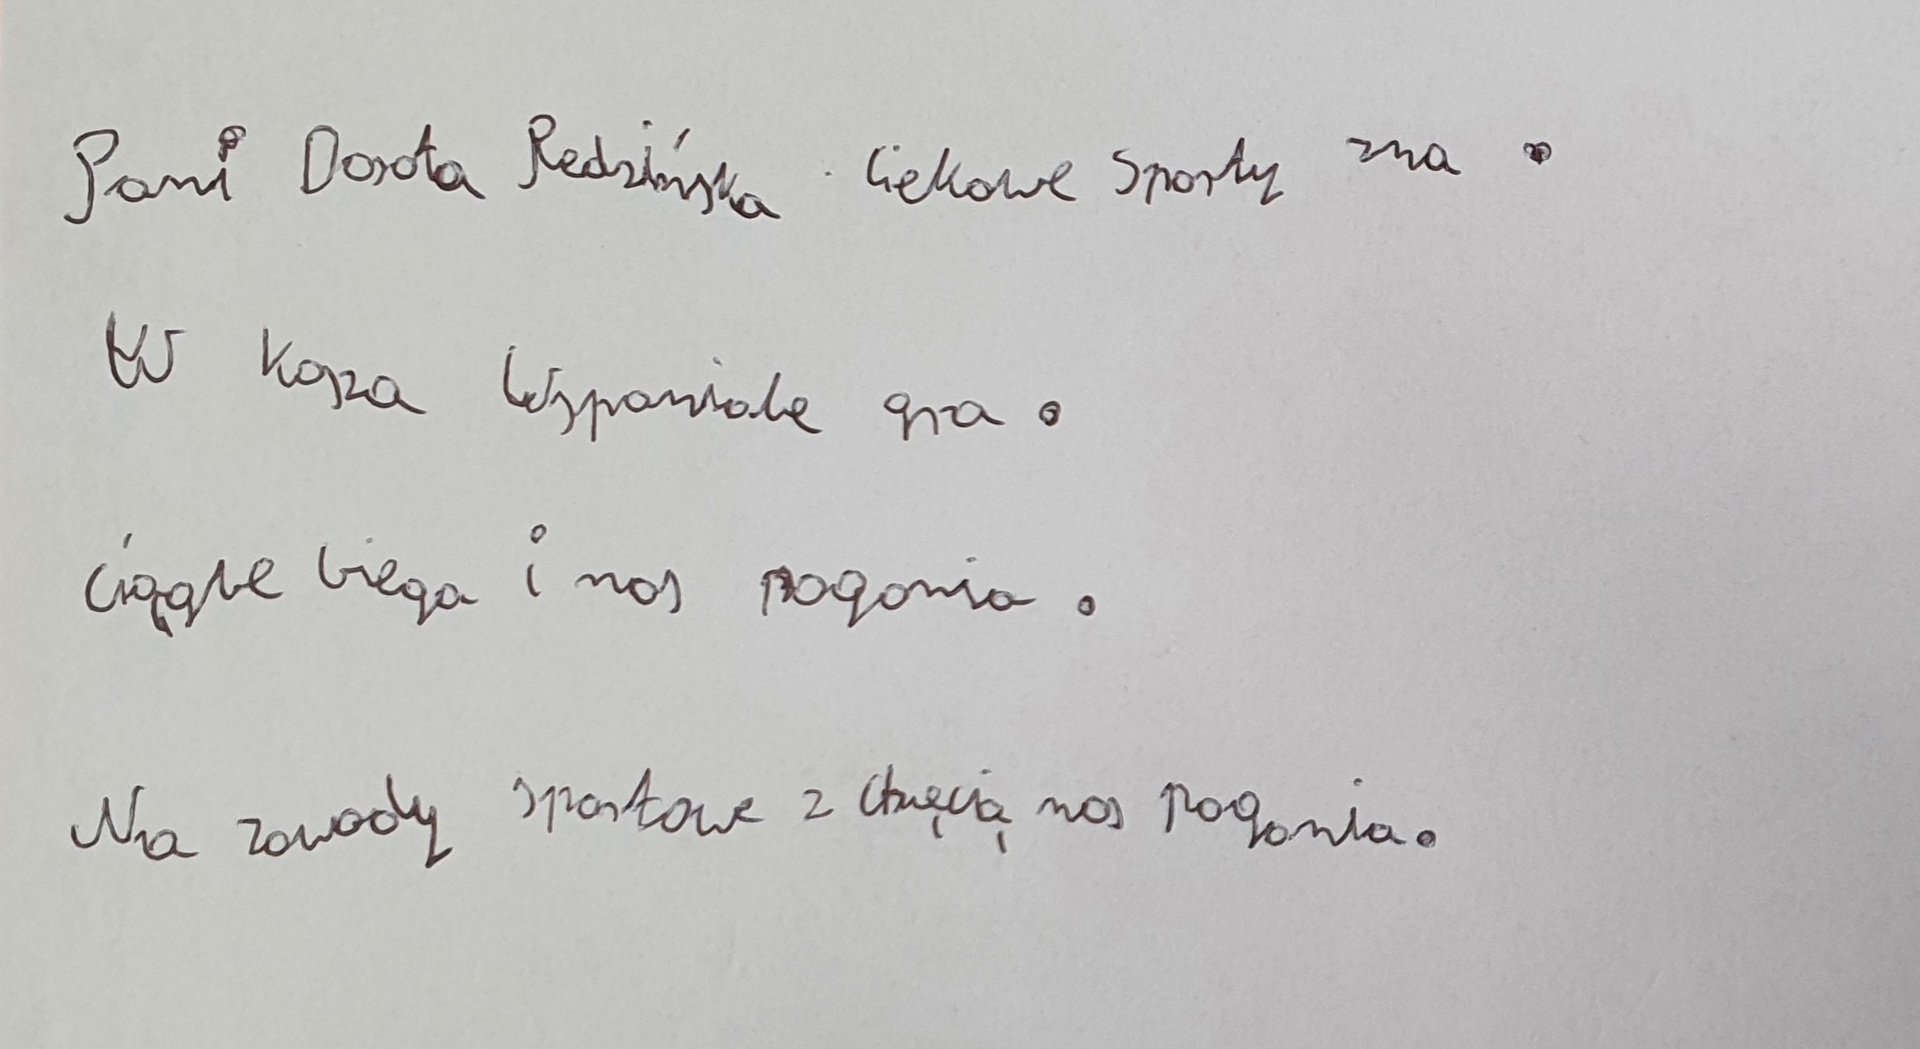 Pani Dorota Redzińska ciekawe sporty zna.
W kosza wspaniale gra.
Ciągle biega i nas pogania.
Na zawody sportowe z chęcią nas pogania.